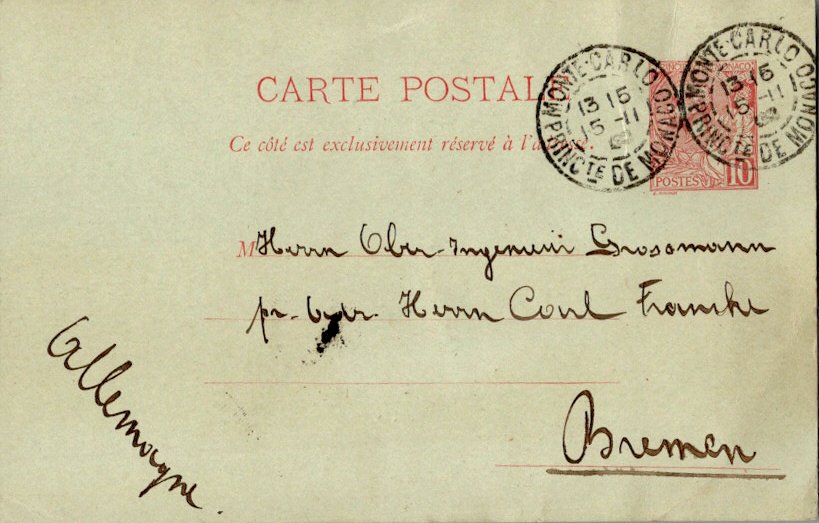 CARTE POSTALE
Ce côté est exclusivement réservé à l'adresse.
MONTE-CARLO
13 15
15 -11
PRINCTE DE MONACO
MONTE-CARLO
13 15
15 -11
PRINCTE DE MONACO
POSTES 10
M Herrn Ober-Ingenieur Grossmann
pr. Adr. Herrn Carl Francke
Bremen
Allemagne.